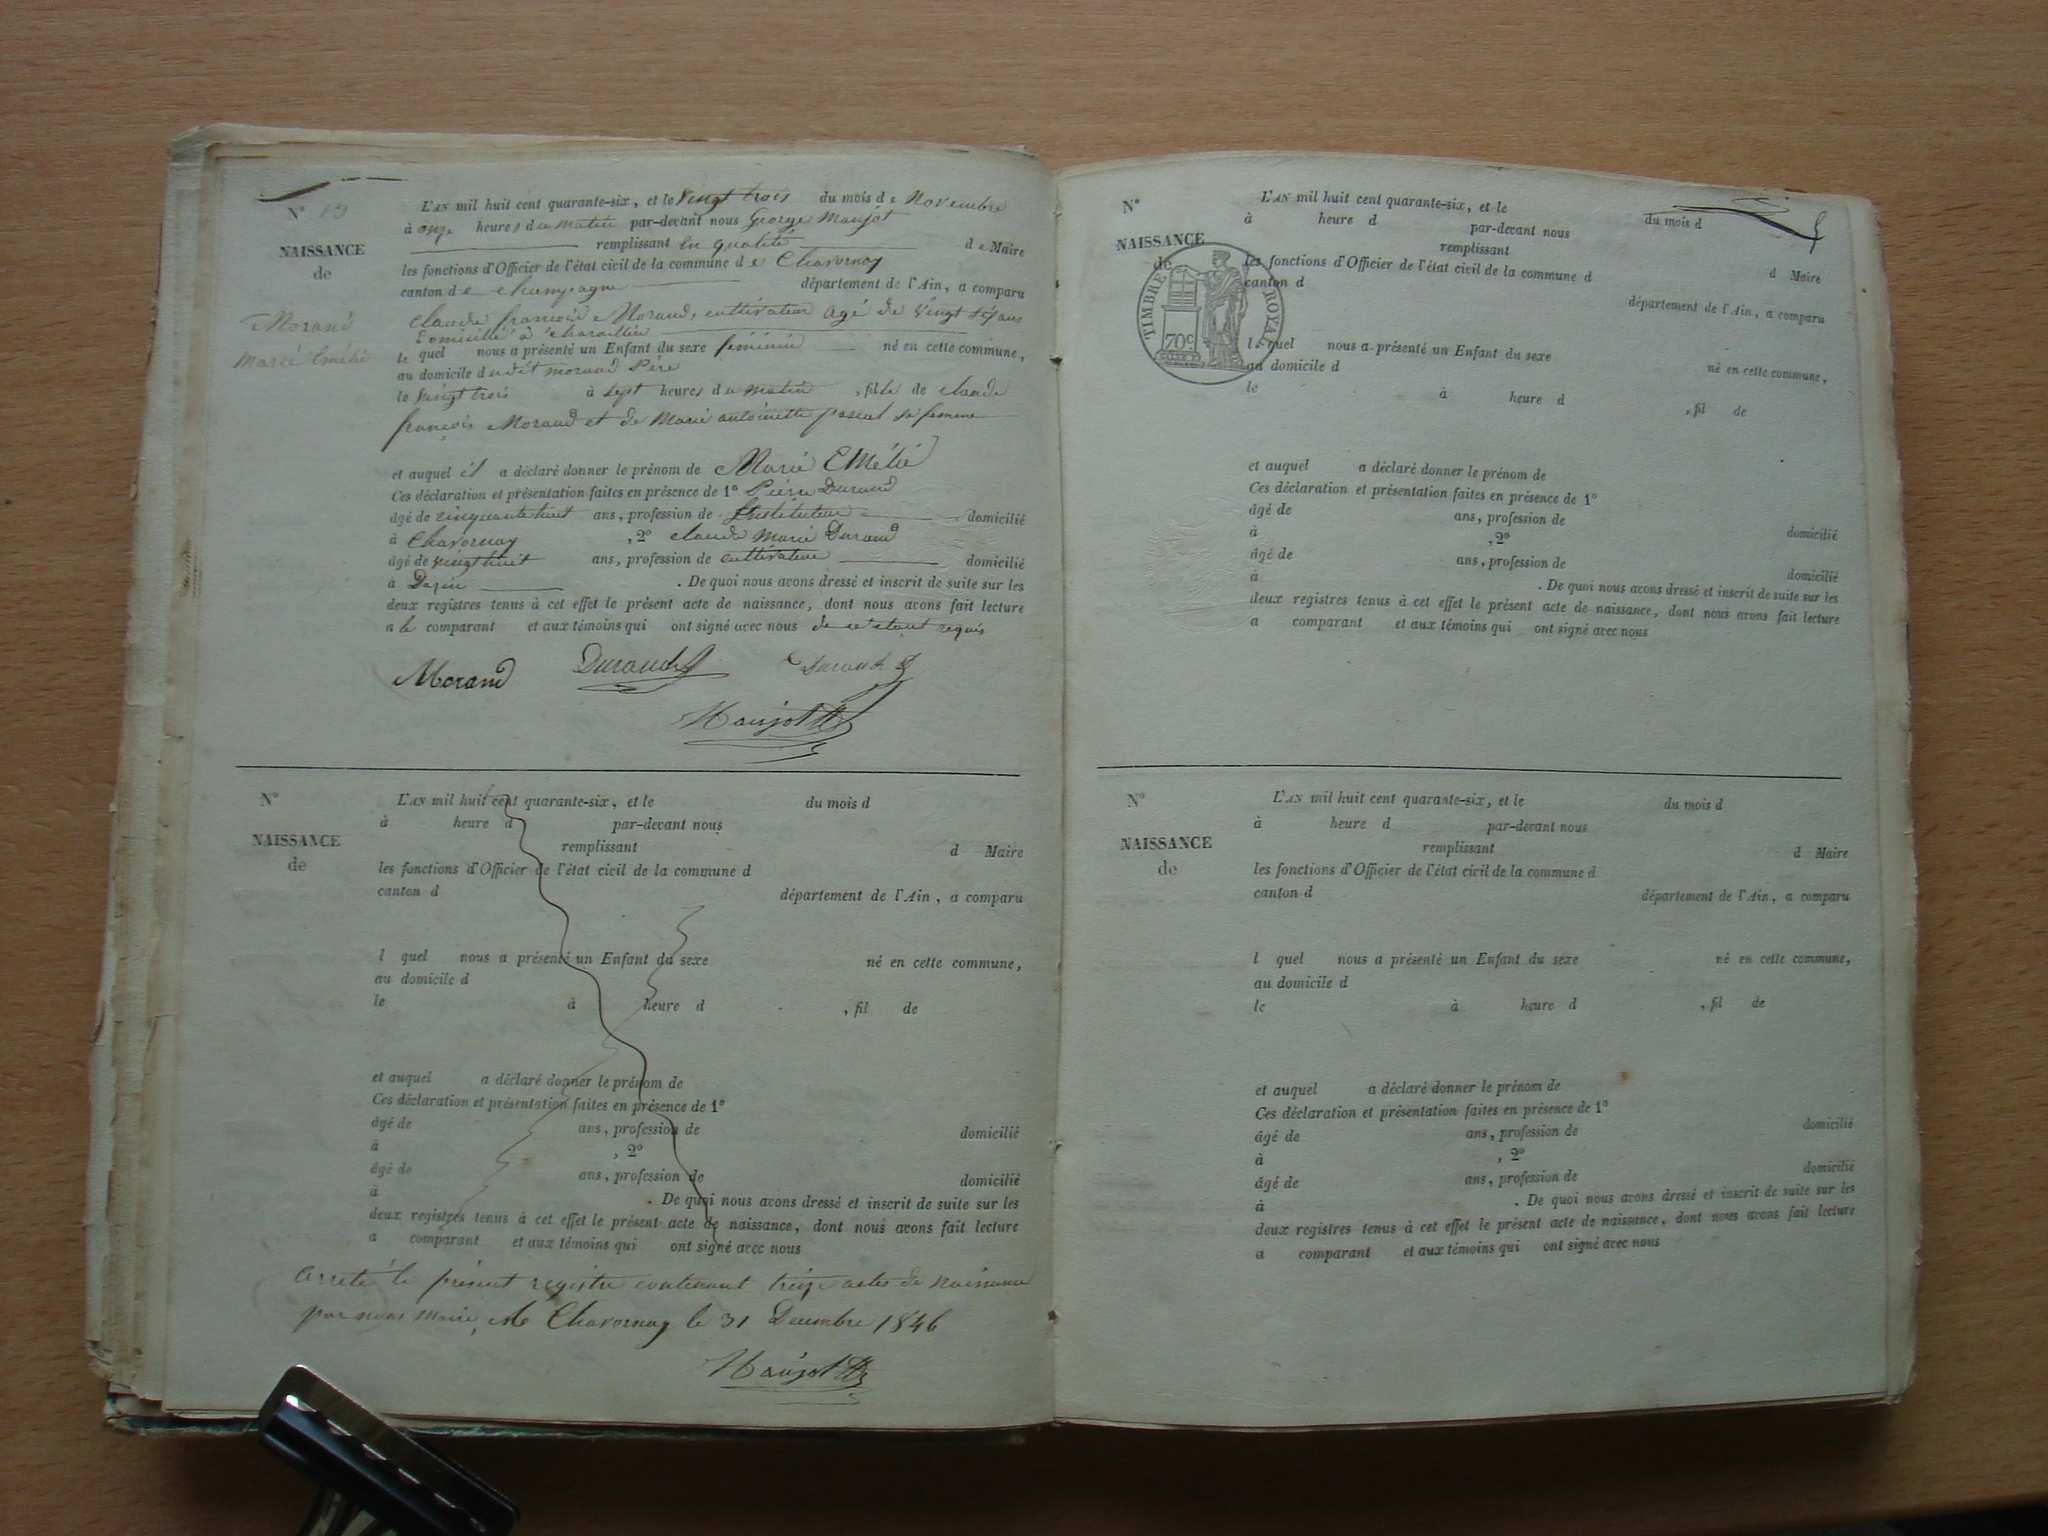 N° 13
NAISSANCE
de
Morand
Marie Emélie
L'AN mil huit cent quarante-six, et le vingt trois du mois de Novembre
à onze heures du matin par-devant nous George Maujot
remplissant en qualité de Maire
les fonctions d'Officier de l'état civil de la commune de Chavornay
canton de champagne département de l'Ain, a comparu
claude françois Morand, cultivateur agé de vingt ans
Domicilié à
le quel nous a présenté un Enfant du sexe féminin né en cette commune,
au domicile dudit morand Père
le vingt trois à sept heures du matin, fille de claude
françois Morand et de Marie antoinette pascal sa femme
et auquel il a déclaré donner le prénom de Marie Emélie
Ces déclaration et présentation faites en présence de 1° Pierre Durand
âgé de cinquante huit ans, profession de Instituteur domicilié
à Chavornay, 2° claude Marie Durand
âgé de vingt huit ans, profession de cultivateur domicilié
à Dazin. De quoi nous avons dressé et inscrit de suite sur les
deux registres tenus à cet effet le présent acte de naissance, dont nous avons fait lecture
a le comparant et aux témoins qui ont signé avec nous de ce étant requis
Morand Durand Durand
Maujot
N°
NAISSANCE
de
L'AN mil huit cent quarante-six, et le du mois d
à heure d par-devant nous
remplissant d Maire
les fonctions d'Officier de l'état civil de la commune d
canton d département de l'Ain, a comparu
l quel nous a présenté un Enfant du sexe né en cette commune,
au domicile d
le à heure d , fil de
et auquel a déclaré donner le prénom de
Ces déclaration et présentation faites en présence de 1°
âgé de ans, profession de domicilié
à , 2°
âgé de ans, profession de domicilié
à . De quoi nous avons dressé et inscrit de suite sur les
deux registres tenus à cet effet le présent acte de naissance, dont nous avons fait lecture
a comparant et aux témoins qui ont signé avec nous
arreté le présent registre contenant treize actes de naissance
par nous maire, A Chavornay le 31 Decembre 1846
Maujot
N°
NAISSANCE
de
TIMBRE ROYAL
70c
L'AN mil huit cent quarante-six, et le du mois d
à heure d par-devant nous
remplissant d Maire
les fonctions d'Officier de l'état civil de la commune d
canton d département de l'Ain, a comparu
l quel nous a présenté un Enfant du sexe né en cette commune,
au domicile d
le à heure d , fil de
et auquel a déclaré donner le prénom de
Ces déclaration et présentation faites en présence de 1°
âgé de ans, profession de domicilié
à , 2°
âgé de ans, profession de domicilié
à . De quoi nous avons dressé et inscrit de suite sur les
deux registres tenus à cet effet le présent acte de naissance, dont nous avons fait lecture
a comparant et aux témoins qui ont signé avec nous
N°
NAISSANCE
de
L'AN mil huit cent quarante-six, et le du mois d
à heure d par-devant nous
remplissant d Maire
les fonctions d'Officier de l'état civil de la commune d
canton d département de l'Ain, a comparu
l quel nous a présenté un Enfant du sexe né en cette commune,
au domicile d
le à heure d , fil de
et auquel a déclaré donner le prénom de
Ces déclaration et présentation faites en présence de 1°
âgé de ans, profession de domicilié
à , 2°
âgé de ans, profession de domicilié
à . De quoi nous avons dressé et inscrit de suite sur les
deux registres tenus à cet effet le présent acte de naissance, dont nous avons fait lecture
a comparant et aux témoins qui ont signé avec nous